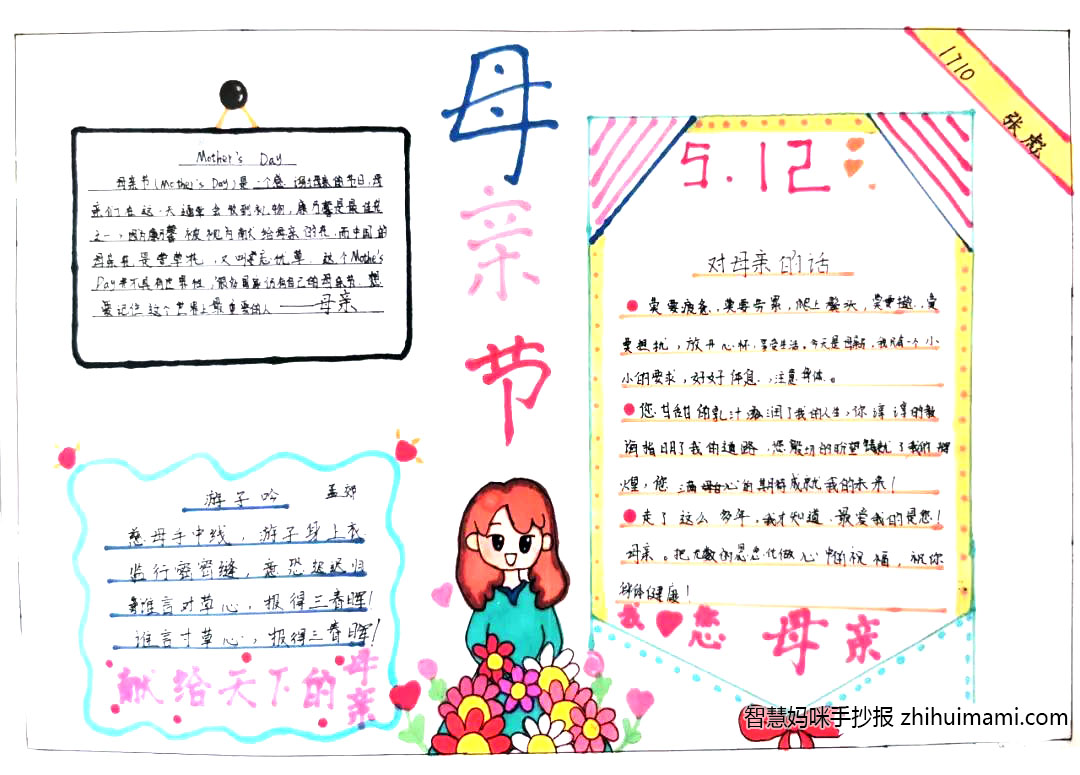 母亲节
1710
张彪
Mother's Day
母亲节(Mother's Day)是一个感谢母亲的节日,母
亲们在这一天通常会收到礼物,康乃馨是最佳花
之一,因为康乃馨被视为献给母亲的花,而中国的
母亲花是萱草花,又叫忘忧草。这个Mothe's
Day并不具有世界性,
要记住这个世界上最重要的人——母亲
游子吟 孟郊
慈母手中线,游子身上衣
临行密密缝,意恐迟迟归
谁言对草心,报得三春晖!
谁言寸草心,报得三春晖!
献给天下的母亲
5.12
对母亲的话
莫要疲惫,莫要劳累,爬上鳌头,
放开心怀,享受生活。今天是母亲节,我只有一个小
小的要求,好好休息,注意身体。
您甘甜的乳汁滋润了我的人生,你谆谆的教
诲指明了我的道路,您殷切的盼望铸就了我的辉
煌,您满心的期待成就我的未来!
走了这么多年,我才知道,最爱我的是您!
母亲。把无数的思念化做心中的祝福,祝你
身体健康!
我 您
母亲
智慧妈咪手抄报 zhihuimami.com